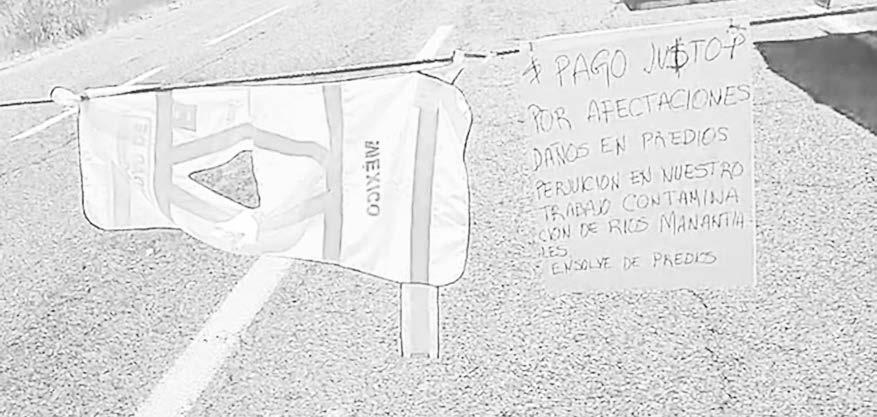 MÉXICO
$ PAGO JU$TO $
POR AFECTACIONES
DAÑOS EN PREDIOS
PERJUICION EN NUESTRO
TRABAJO CONTAMINA
CION DE RIOS MANANTIA
LES
ENSOLVE DE PREDIOS